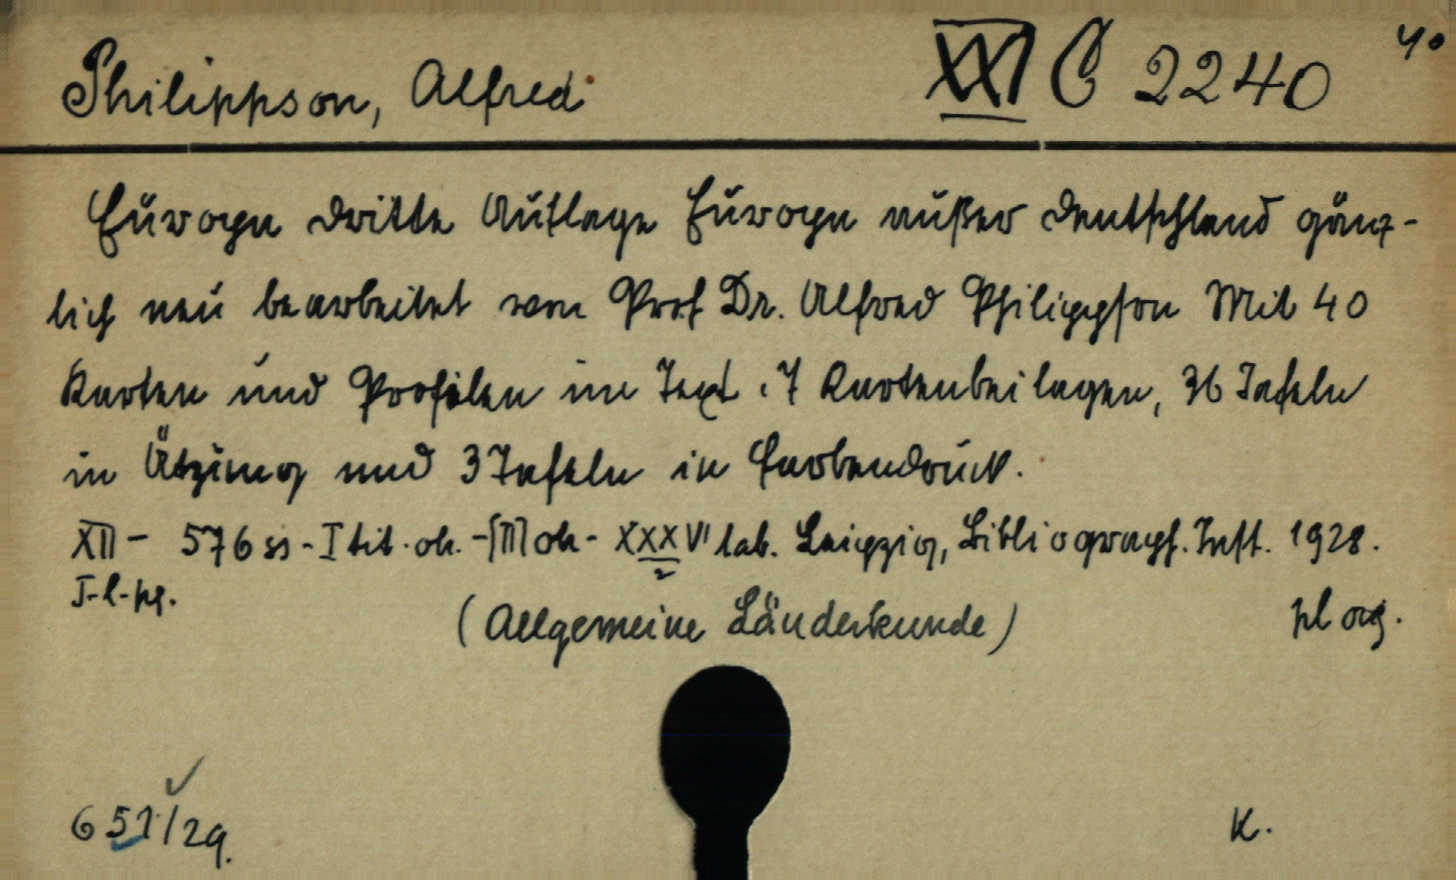 Philippson, Alfred XXI C 2240 4°
Europa dritte Auflage Europa außer Deutschland gänz-
lich neu bearbeitet von Prof Dr. Alfred Philippson Mit 40
Karten und Profilen im Text. 7 Kartenbeilagen, 36 Tafeln
in Ätzung und 3 Tafeln in Farbendruck.
XII - 576 ss - I tit. ok. - [III] ok - XXXVI tab. Leipzig, Bibliograph. Inst. 1928.
2
I-l-pg.
(Allgemeine Länderkunde) pl org.
✓
651/29. K.